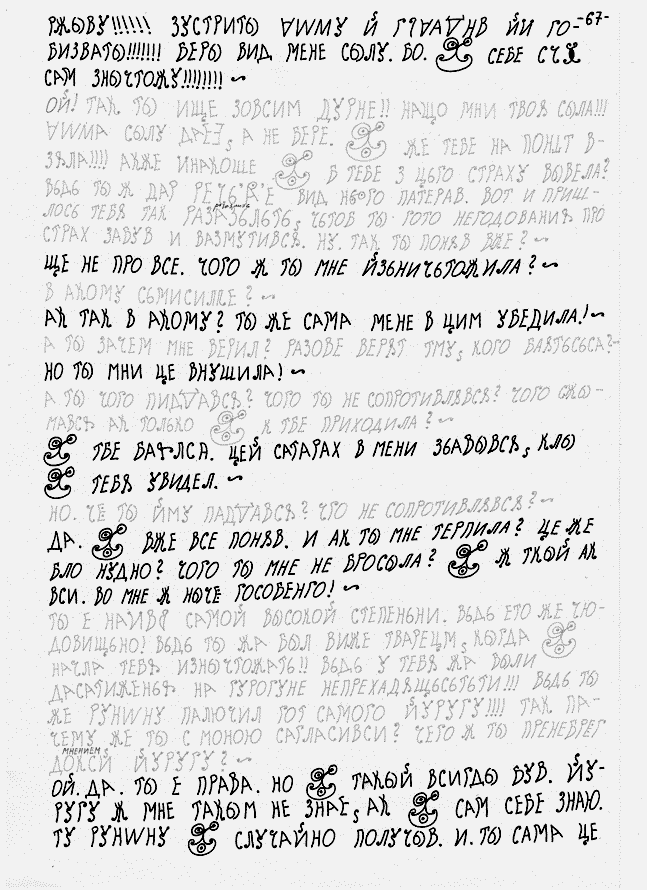 РЖЫВУ!!!!!! ЗУСТРИТЫ Й ЙИ ГО- -67-
БИЗВАТЫ!!!!!!! БЕРЫ ВИД МЕНЕ СЫЛУ. БО. СЕБЕ
САМ ЗНЫЧТОЖУ!!!!!!!! ~
ОЙ! ТАК ТЫ ИЩЕ ЗОВСИМ ДУРНЕ!! НАЩО МНИ ТВОЯ СЫЛА!!!
СЫЛУ, А НЕ БЕРЕ. ЖЕ ТЕБЕ НА В-
ЗЯЛА!!!! АКЖЕ ИНАКОШЕ В ТЕБЕ З ЦЬГО СТРАХУ ВЫВЕЛА?
ВЬДЬ ТЫ Ж ДАР ВИД ПАТЕРАВ. ВОТ И ПРИШ-
ЛОСЬ ТЕБЯ ТАК ЧЬТОБ ТЫ ТОТО НЕГОДОВАНИЯ ПРО
СТРАХ ЗАБУВ И ВАЗМУТИВСЯ. НУ. ТАК ТЫ ПОНЯВ ВЖЕ? ~
ЩЕ НЕ ПРО ВСЕ. ЧОГО Ж ТЫ МНЕ ЙЗЬНИЧЬТОЖИЛА? ~
В АКОМУ СЬМИСИЛЖЕ? ~
АК ТАК В АКОМУ? ТЫ ЖЕ САМА МЕНЕ В ЦИМ УБЕДИЛА! ~
А ТЫ ЗАЧЕМ МНЕ ВЕРИЛ? РАЗОВЕ ВЕРЯТ ТМУ, КОГО БАЯТЬСЬСА? ~
НО ТЫ МНИ ЦЕ ВНУШИЛА! ~
А ТЫ ЧОГО ПИДДАВСЯ? ЧОГО ТЫ НЕ СОПРОТИВЛЯВСЯ? ЧОГО СЖЫ-
МАВСЯ АК ТОЛЬКО К ТБЕ ПРИХОДИЛА? ~
ТБЕ БАЯЛСЯ. ЦЕЙ САТАРАХ В МЕНИ ЗБАВЫВСЯ, КЛЫ
ТЕБЯ УВИДЕЛ. ~
НО. ЧЁ ТЫ ЙМУ ПАДДАВСЯ? ЧГО НЕ СОПРОТИВЛЯВСЯ? ~
ДА. ВЖЕ ВСЕ ПОНЯВ. И АК ТЫ МНЕ ТЕРПИЛА? ЦЕ ЖЕ
БЛО НУДНО? ЧОГО ТЫ МНЕ НЕ БРОСЫЛА? Ж ТКЫЙ АК
ВСИ. ВО МНЕ Ж НЫЧЁ ГОСОВЕНГО! ~
ТЫ Е САМОЙ ВЫСОКОЙ СТЕПЕНЬНИ. ВЬДЬ ЕТО ЖЕ ЧЮ-
ДОВИЩЬНО! ВЬДЬ ТЫ ЖА БЫЛ ВИЖЕ ТВАРЕЦМ, КЫРДА
НАЧЛА ТЕБЯ ИЗНЫЧТОЖАТЬ!! ВЬДЬ У ТЕБЯ ЖА БЫЛИ
ДАСАТИЖЕНЬЯ НА ГУРОГУНЕ НЕПРЕХАДЯЩЬСЬТЬТИ!!! ВЬДЬ ТЫ
ЖЕ РУНИНУ ПАЛЮЧИЛ ТОТ САМОГО ЙУРУГУ!!!! ТАК ПА-
ЧЕМУ ЖЕ ТЫ С МОНОЮ САГЛАСИВСИ? ЧЕГО Ж ТЫ ПРЕНЕБРЕГ
МНЕНИЕМ ЙУРУГУ? ~
ОЙ. ДА. ТЫ Е ПРАВА. НО ТАКЫЙ ВСИГДЫ БУВ. ЙУ-
РУГУ Ж МНЕ ТАКЫМ НЕ ЗНАЕ, АК САМ СЕБЕ ЗНАЮ.
ТУ РУНИНУ СЛУЧАЙНО ПОЛУЧЫВ. И. ТЫ САМА ЦЕ